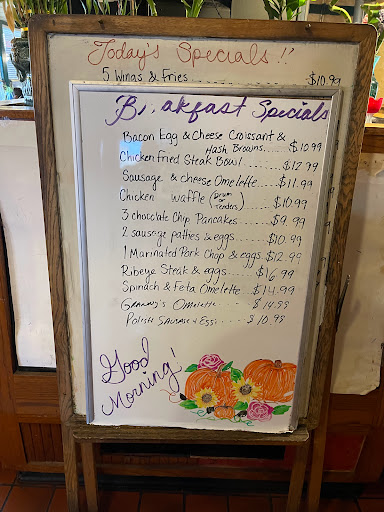 Today's Specials!!
5 Wings & Fries..........$10.99
Breakfast Specials
Bacon Egg & Cheese Croissant &
Hash Browns....$10.99
Chicken fried Steak Bowl........$12.99
Sausage & cheese Omelette.....$11.99
Chicken waffle (Drum or Tenders).....$10.99
3 chocolate Chip Pancakes....$9.99
2 sausage patties & eggs......$10.99
1 Marinated Pork Chop & eggs.$12.99
Ribeye Steak & eggs......$16.99
Spinach & Feta Omelette...$14.99
Granny's Omelette.....$14.99
Polish Sausage & Eggs...$10.99
Good
Morning!